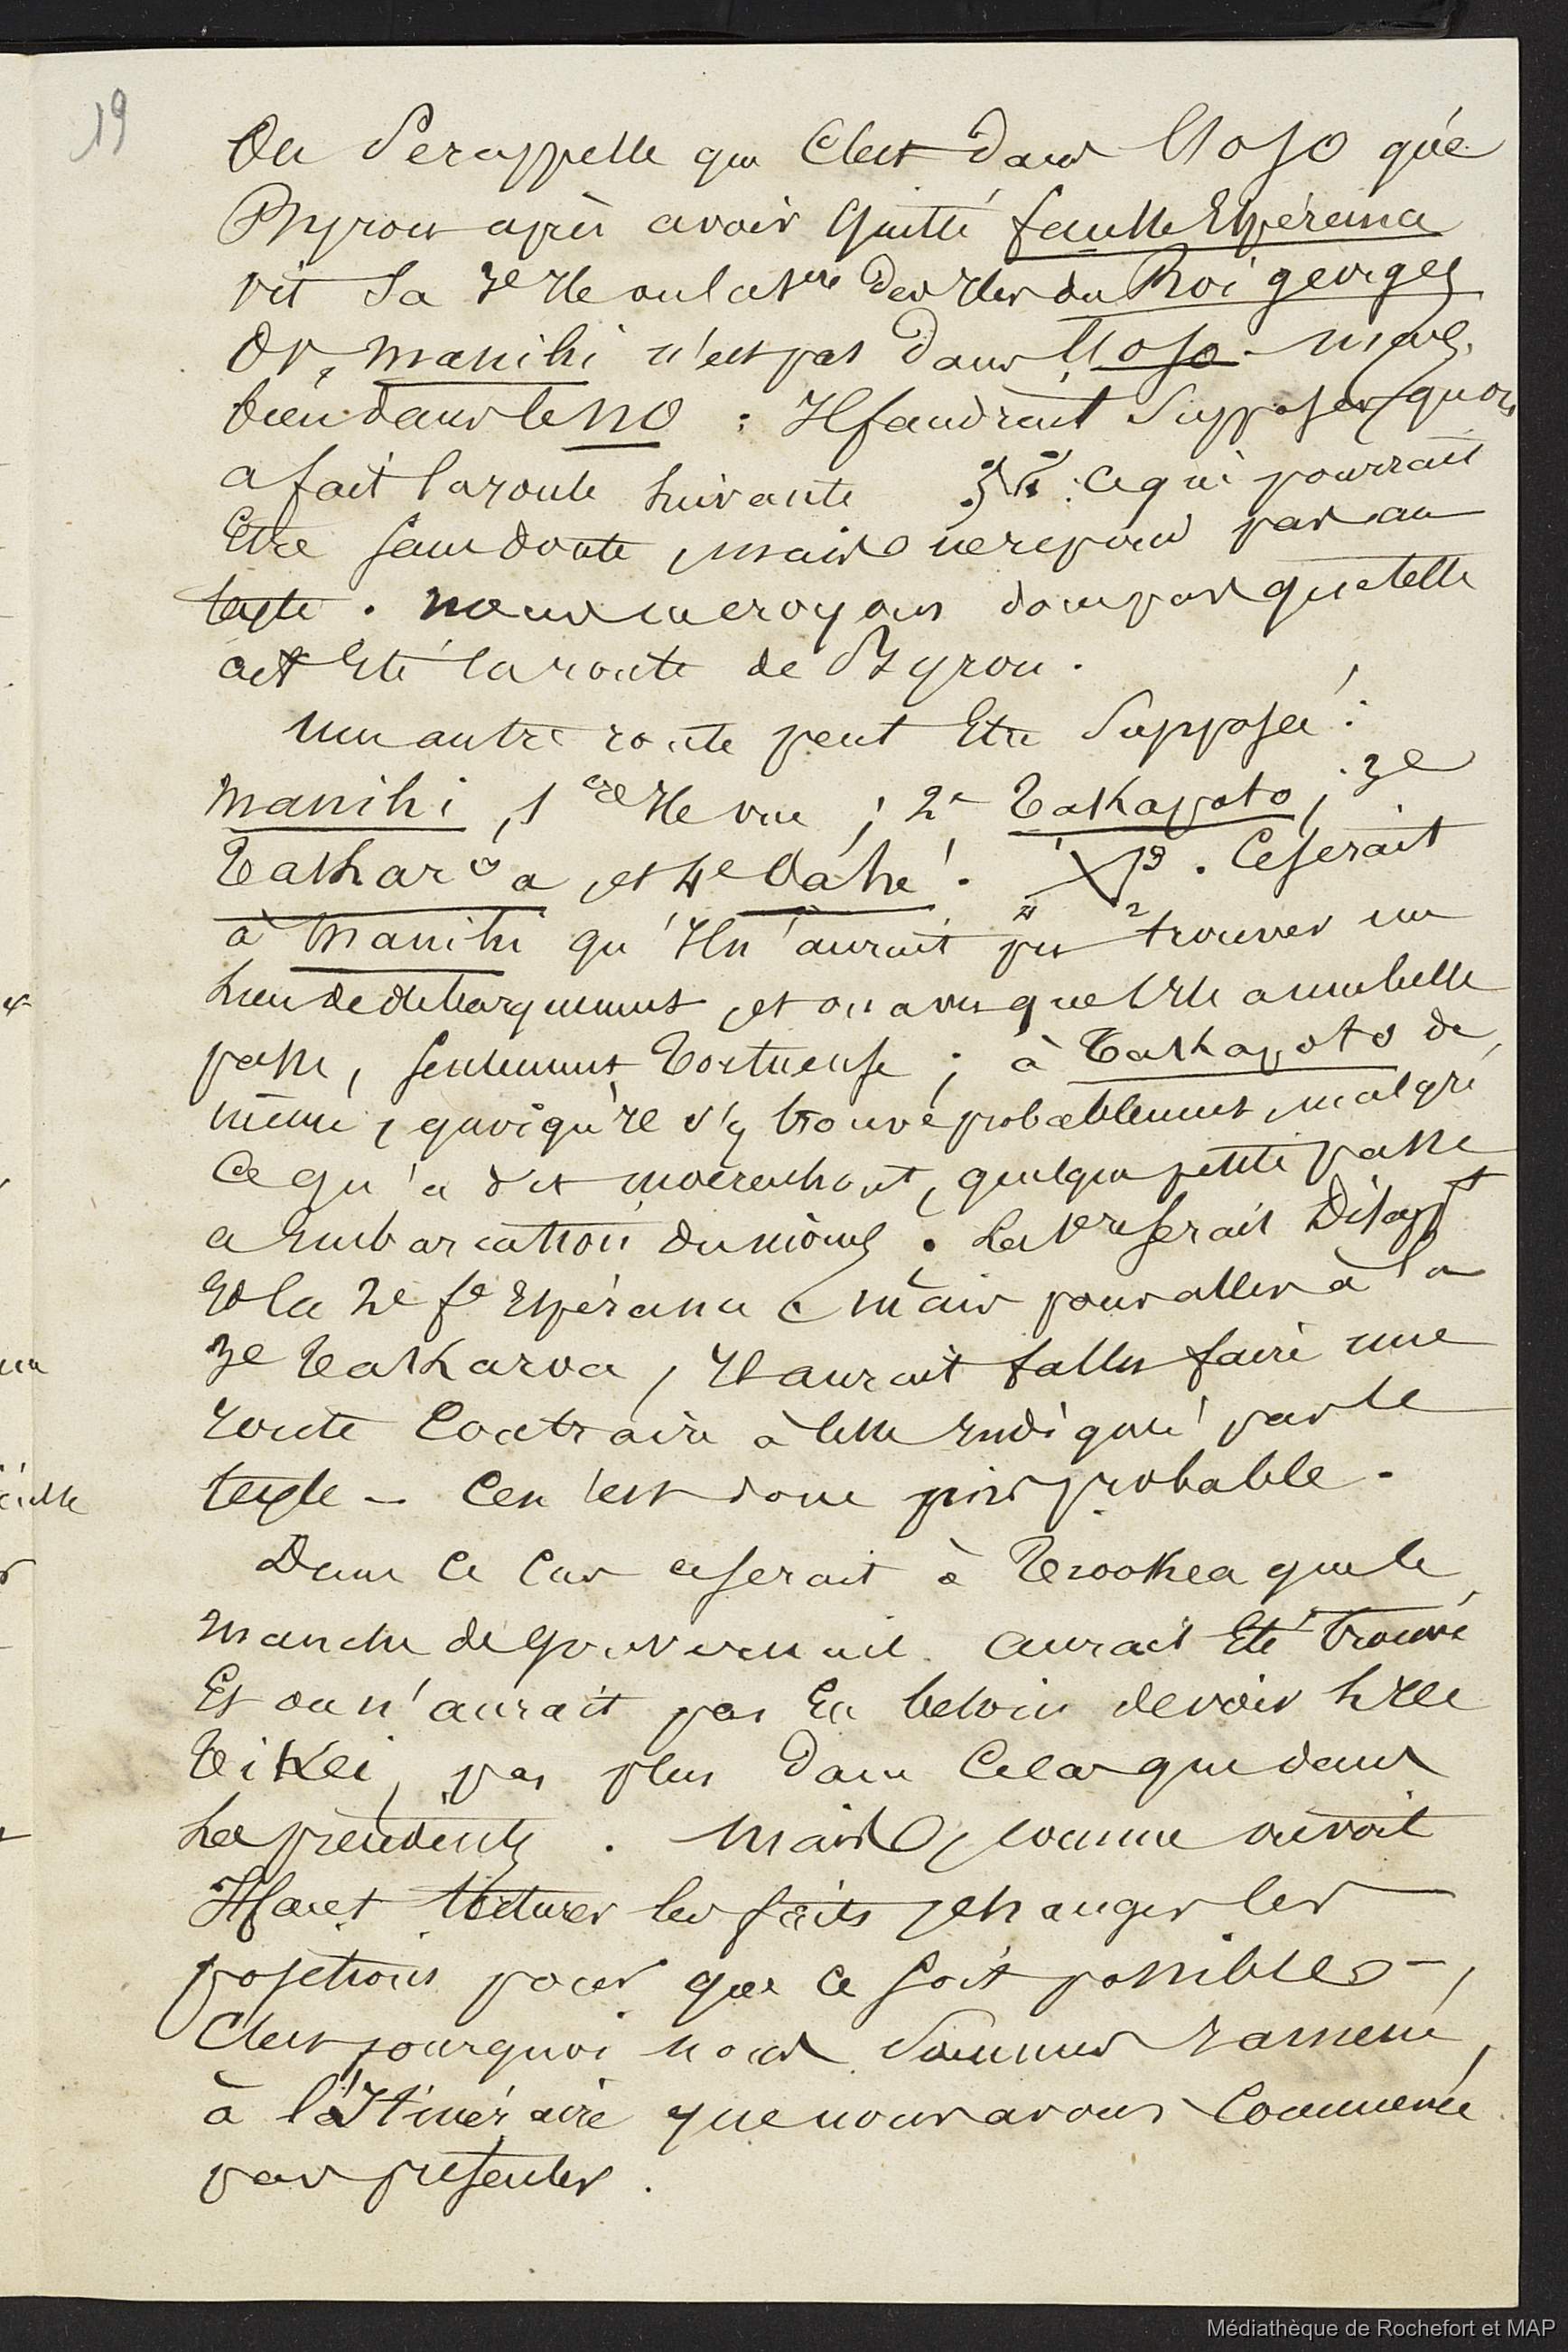 19
On se rappelle que c'est dans l'OSO que
Byron après avoir quitté fausse Espérance
vit sa 3e Ile ou la 1ere des Iles du Roi georges
Or, manihi n'est pas dans l'OSO - mais
bien dans le NO : Il faudrait supposer qu'on
a fait la route suivante ce qui pourrait
Etre sans doute, mais ne repond pas au
texte . nous ne croyons donc pas que telle
ait Eté la route de Byron .
Une autre route peut Etre supposée :
Manihi, 1ere Ile vue ; 2e Takapoto ; 3e
Takaroa, et 4e Oahe . 3 . Ce serait
4 2
à Manihi qu'Il n'aurait pu trouver un
lieu de debarquement, et on a vu que l'Ile a une belle
passe, seulement tortueuse ; à Takapoto de
même, quoiqu'Il s'y trouve probablement, malgré
ce qu'a dit moerenhout, quelque petite passe
a Embarcation du moins . La 1re serait Disappt
Et la 2e fse Espérance mais pour aller à la
3e Takaroa, Il aurait fallu faire une
route Contraire à celle Indiquée par le
texte - Ce n'est donc pas probable .
Dans ce Cas ce serait à Teookea que le
manche de gouvernail aurait Eté trouvé
Et on n'aurait pas Eu besoin de voir l'Ile
Tikei, pas plus dans Cela que dans
les précédents . Mais, comme on voit
Il faut torturer les faits, changer les
positions pour que ce soit possible - ,
C'est pourquoi nous sommes ramené
à l'Itinéraire que nous avons Commencé
par présenter .
Médiathèque de Rochefort et MAP